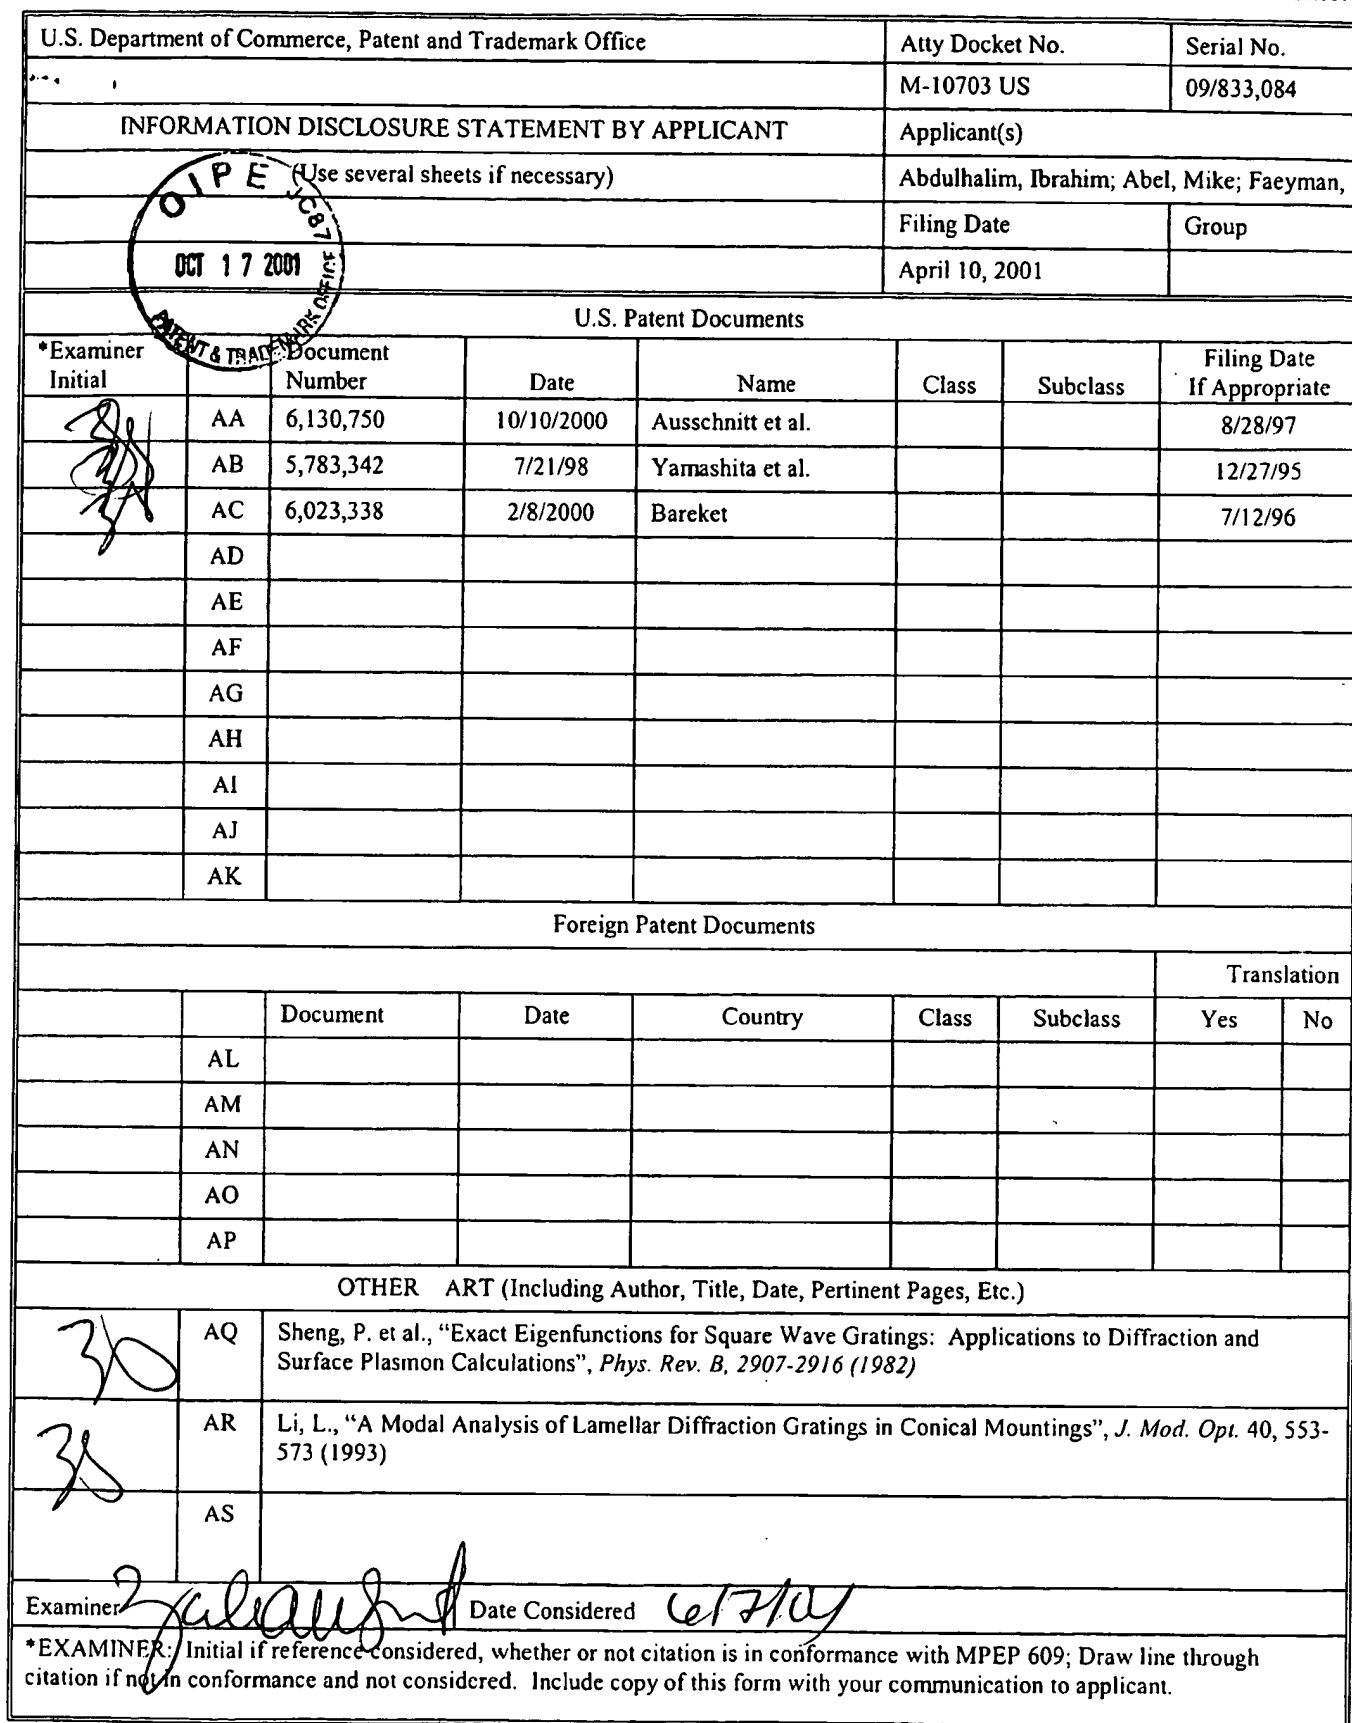 U.S. Department of Commerce, Patent and Trademark Office Atty Docket No. Serial No.
M-10703 US 09/833,084
INFORMATION DISCLOSURE STATEMENT BY APPLICANT Applicant(s)
(Use several sheets if necessary) Abdulhalim, Ibrahim; Abel, Mike; Faeyman,
Filing Date Group
April 10, 2001
OIPE JC87
OCT 17 2001
PATENT & TRADEMARK OFFICE
U.S. Patent Documents
*Examiner Initial Document Number Date Name Class Subclass Filing Date If Appropriate
AA 6,130,750 10/10/2000 Ausschnitt et al. 8/28/97
AB 5,783,342 7/21/98 Yamashita et al. 12/27/95
AC 6,023,338 2/8/2000 Bareket 7/12/96
AD
AE
AF
AG
AH
AI
AJ
AK
Foreign Patent Documents
Translation
Document Date Country Class Subclass Yes No
AL
AM
AN
AO
AP
OTHER ART (Including Author, Title, Date, Pertinent Pages, Etc.)
AQ Sheng, P. et al., “Exact Eigenfunctions for Square Wave Gratings: Applications to Diffraction and
Surface Plasmon Calculations”, Phys. Rev. B, 2907-2916 (1982)
AR Li, L., “A Modal Analysis of Lamellar Diffraction Gratings in Conical Mountings”, J. Mod. Opt. 40, 553-
573 (1993)
AS
Examiner Date Considered 6/7/04
*EXAMINER: Initial if reference considered, whether or not citation is in conformance with MPEP 609; Draw line through
citation if not in conformance and not considered. Include copy of this form with your communication to applicant.